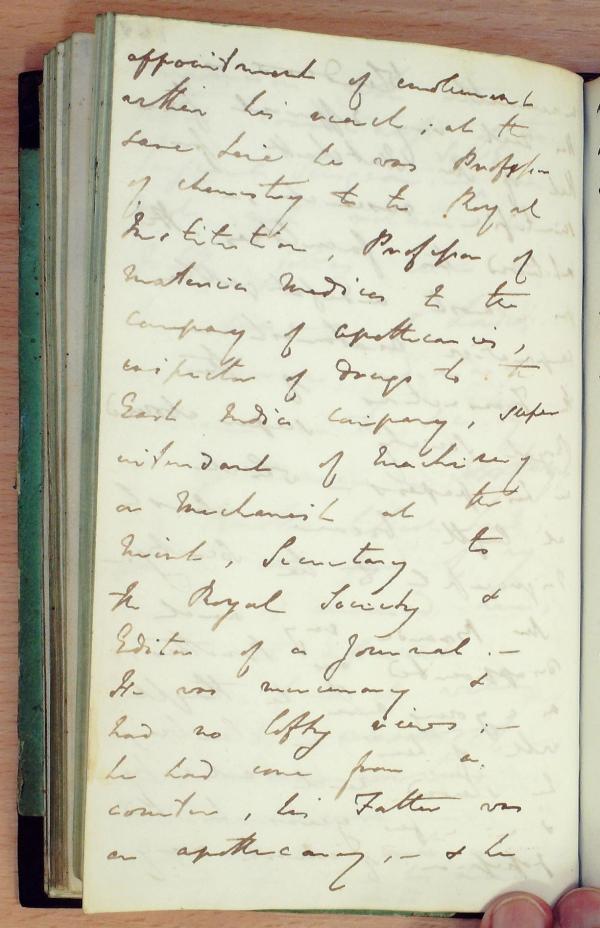 appointment of emolument
within his reach; at the
same time he was Professor
of chemistry to the Royal
Institution, Professor of
Materia Medica to the
company of apothecaries,
inspector of drugs to the
East India company, super
intendant of Machinery
or Mechanist at the
Mint, Secretary to
the Royal Society &
Editor of a Journal. –
He was mercenary &
had no lofty views; –
he had come from a
counter, his Father was
an apothecary, – & he